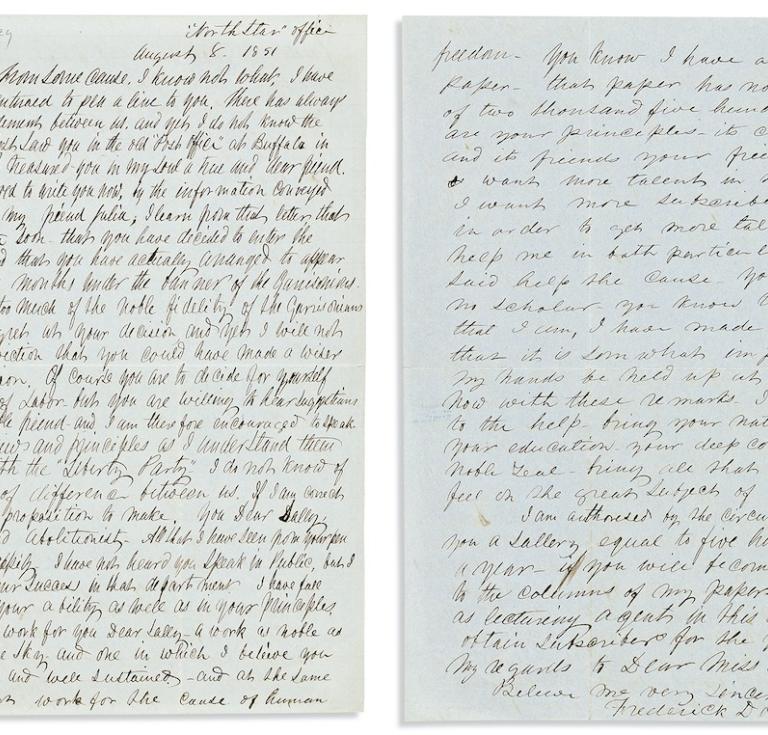 "North Star" office
August 8. 1851
From some cause, I know not what, I have
to pen a line to you. There has always
between us. and yet I do not know the
said you in the old "Post office" at Buffalo in
treasured you in my soul a true and dear friend.
to write you now, by the information conveyed
my friend Julia; I learn from that letter that
soon - that you have decided to enter the
that you have actually arranged to appear
months under the banner of the Garrisonians.
too much of the noble fidelity of the Garrisonians
at your decision and yet I will not
that you could have made a wiser
Of course you are to decide for yourself
of Labor but you are willing to hear suggestions
friend - and I am therefore encouraged to speak
and principles as I understand them
the "Liberty Party" I do not know of
of difference between us. If I am correct
proposition to make. You Dear Sally
Abolitionist - All that I have seen from your pen
I have not heard you speak in Public, but I
sucsess in that department I have
your ability as well as in your Principles
work for you Dear Sally - a work as noble as
sky - and one in which I believe you
and well sustained - and at the same
work for the cause of human
freedom - You know I have a
paper - that paper has no
of two thousand five hun
are your principles - its c
and its friends your frie
want more talent in
I want more subscribe
in order to get more tal
help me in both particul
said help the cause. Yo
no scholar you know
that I am, I have made
that it is som what im
my hands be held up at
now with these remarks I
to the help - bring your nat
your education your deep co
noble zeal - bring all that
feel on the great subject of
I am authorised by the circu
you a sallery equal to five hu
a year - if you will becom
to the columns of my paper
as lecturing agent in this
obtain subscribers for the
My regards to Dear Miss
Believe me very sincer
Frederick D